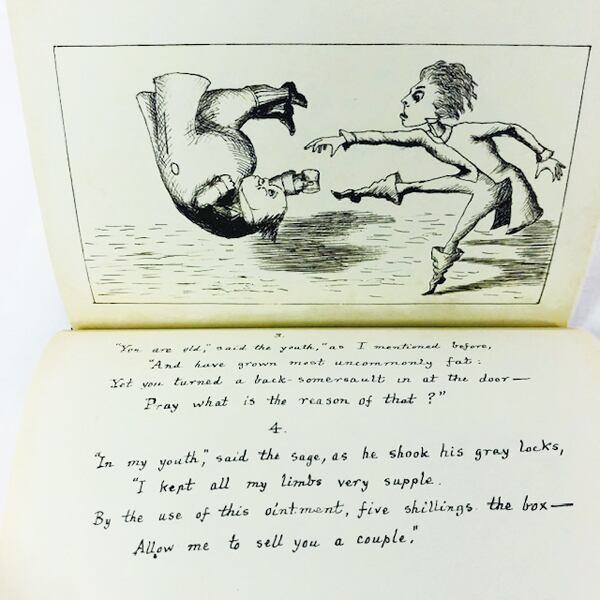 3.
"You are old," said the youth, "as I mentioned before,
"And have grown most uncommonly fat:
Yet you turned a back-somersault in at the door—
Pray what is the reason of that?"
4.
"In my youth," said the sage, as he shook his gray locks,
"I kept all my limbs very supple.
By the use of this ointment, five shillings the box—
Allow me to sell you a couple."